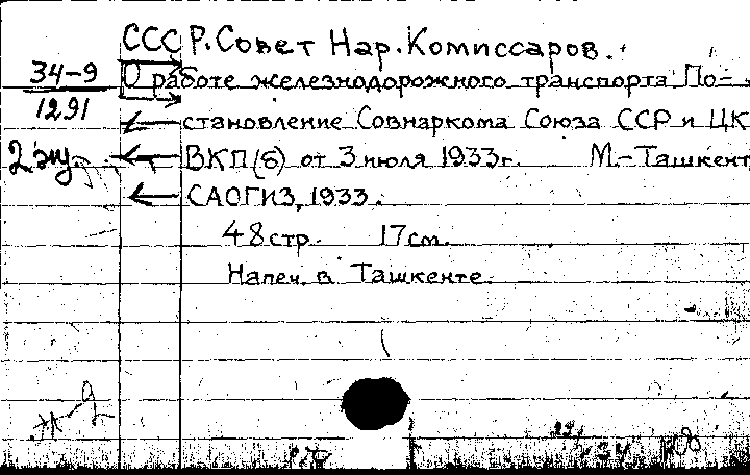 СССР. Совет Нар. Комиссаров.
34-9
1291
О работе железнодорожного транспорта. По-
становление Совнаркома Союза ССР и ЦК
2 экз.
ВКП(б) от 3 июля 1933 г. М.-Ташкент
САОГИЗ, 1933.
48 стр. 17 см.
Напеч. в Ташкенте.